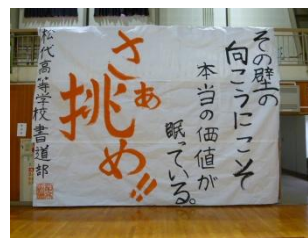 その壁の
向こうにこそ
本当の価値が
眠っている。
さぁ
挑め!!
松代高等学校書道部